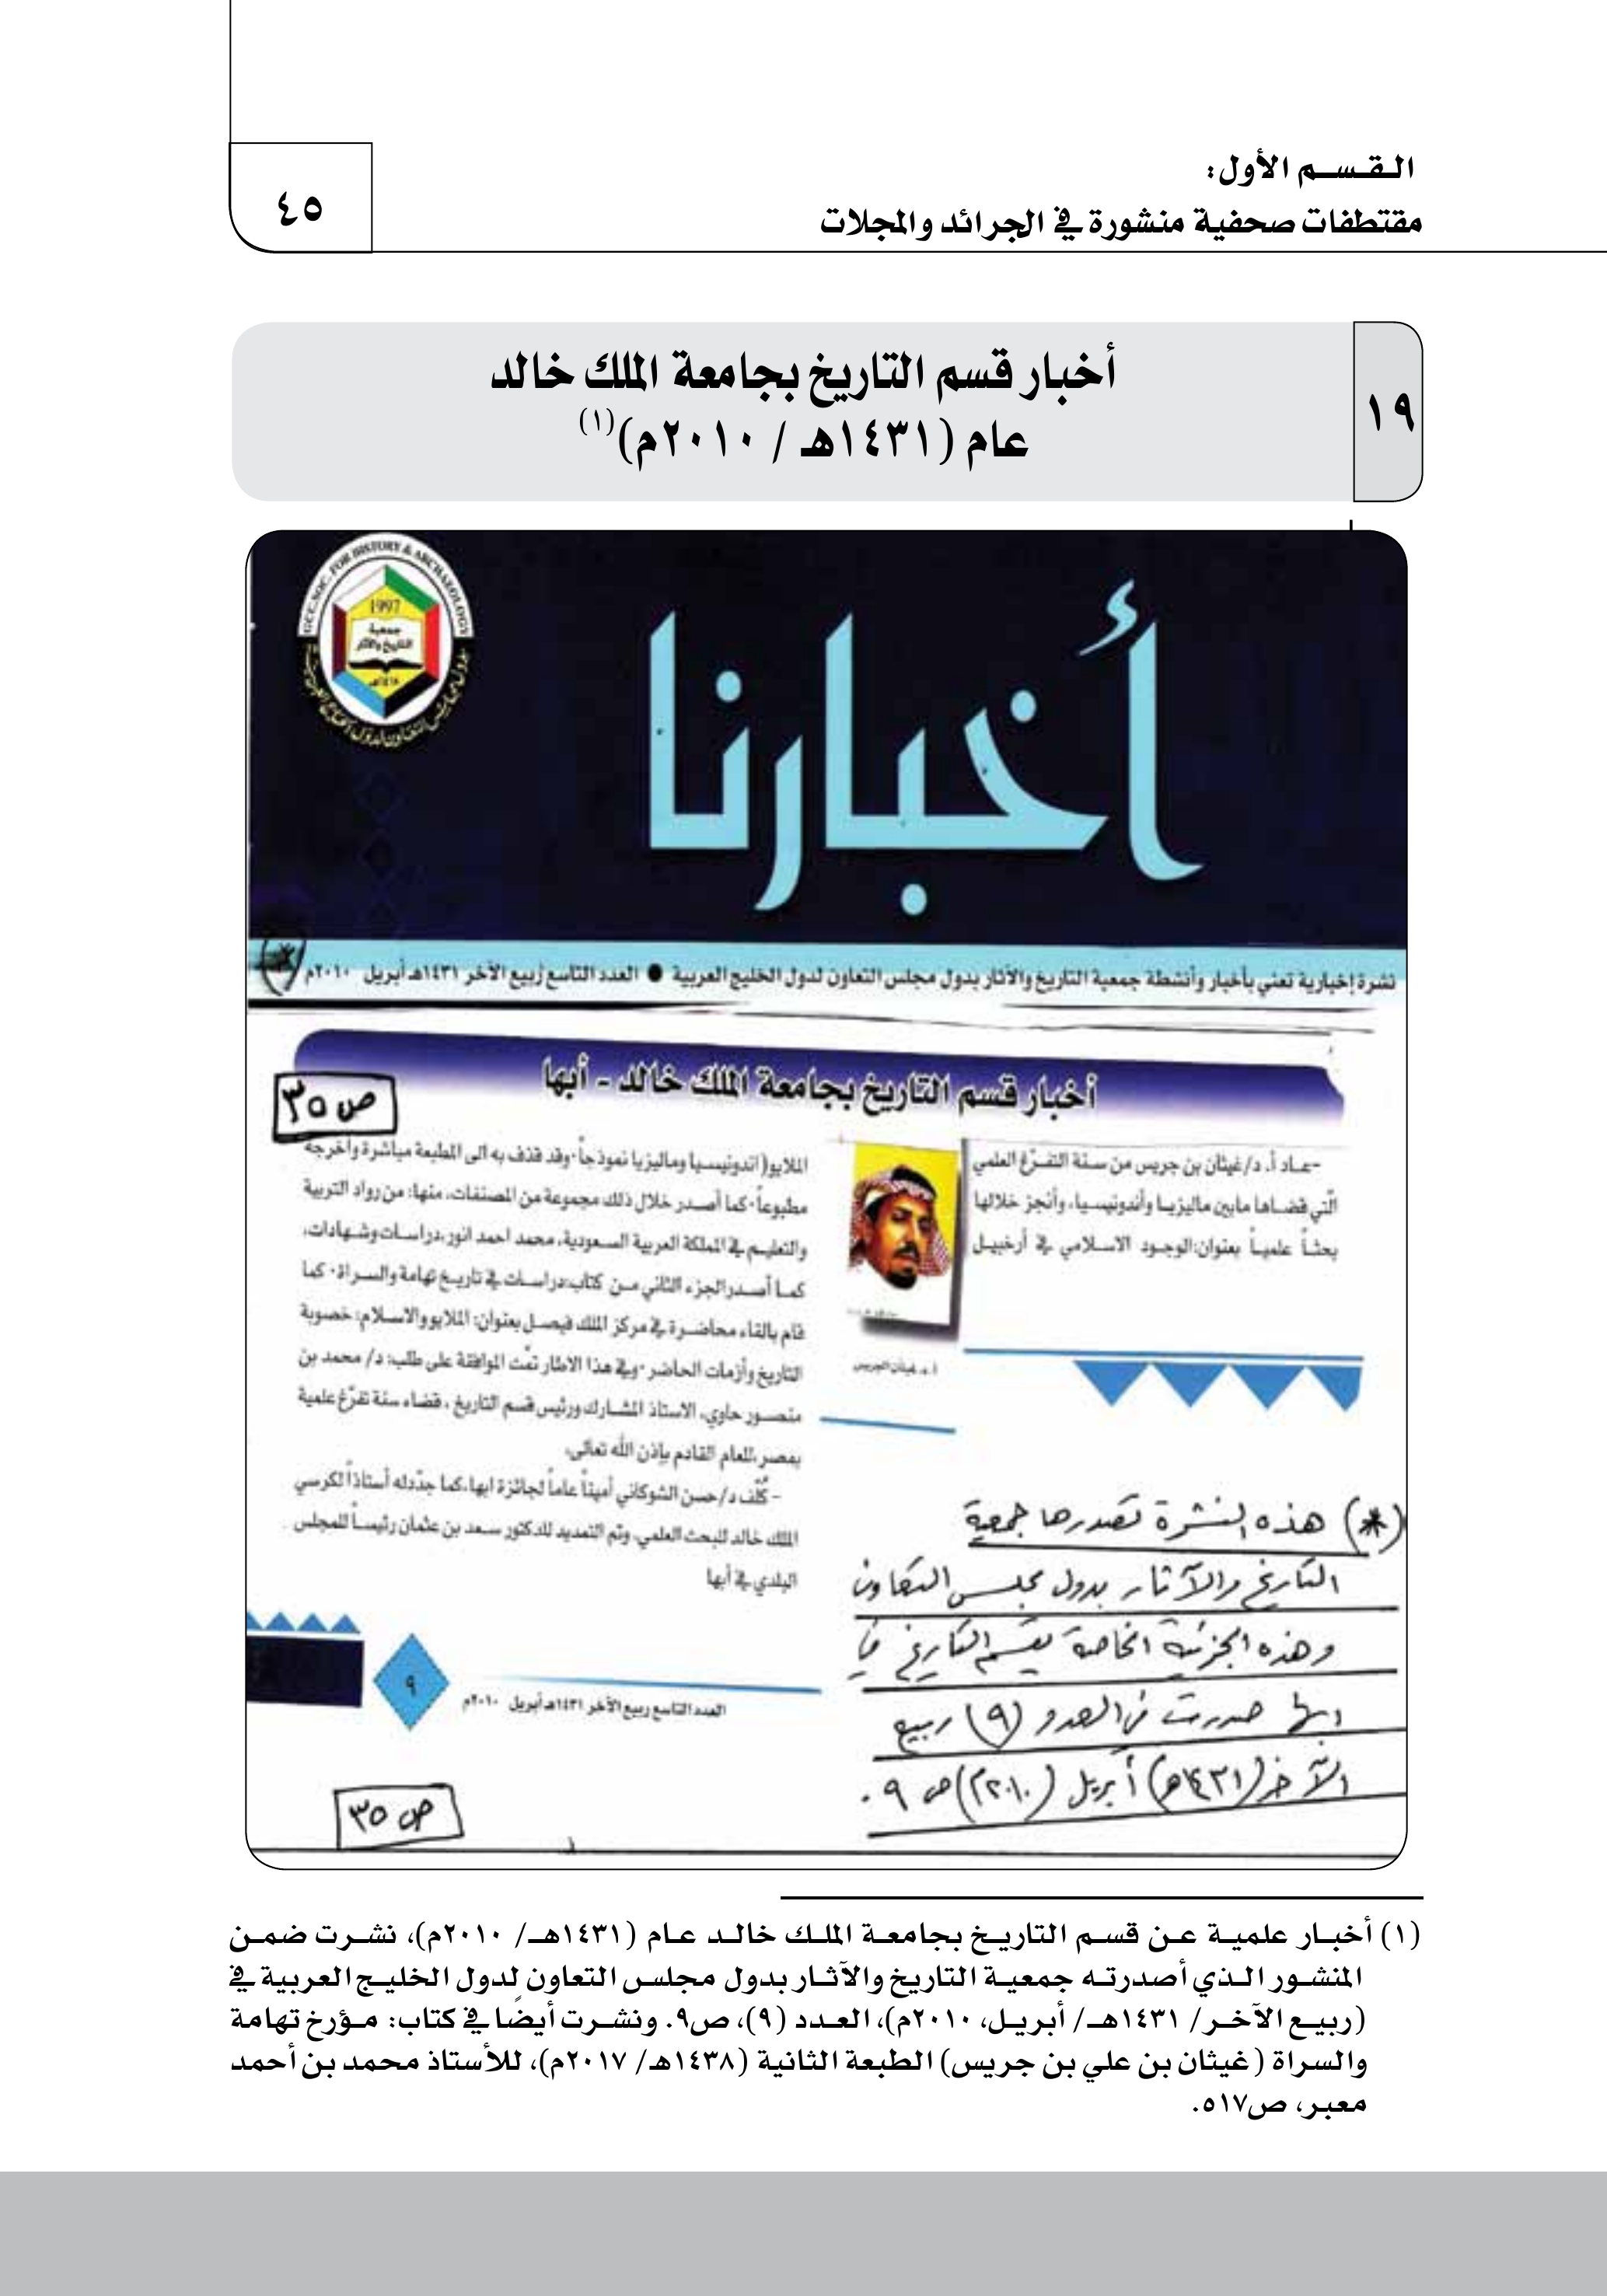 القسم الأول:
مقتطفات صحفية منشورة في الجرائد والمجلات
٤٥
١٩
أخبار قسم التاريخ بجامعة الملك خالد
عام (١٤٣١هـ / ٢٠١٠م)(١)
GCC SOC. FOR HISTORY & ARCHAEOLOGY
1997
جمعية
التاريخ والآثار
١٤١٨هـ
أخبارنا
نشرة إخبارية تعني بأخبار وأنشطة جمعية التاريخ والآثار بدول مجلس التعاون لدول الخليج العربية ● العدد التاسع ربيع الآخر ١٤٣١هـ أبريل ٢٠١٠م
أخبار قسم التاريخ بجامعة الملك خالد - أبها
ص ٣٥
-عاد أ. د/غيثان بن جريس من سنة التفرّغ العلمي
الّتي قضاها مابين ماليزيا وأندونيسيا، وأنجز خلالها
بحثاً علمياً بعنوان:الوجود الاسلامي في أرخبيل
أ.د. غيثان الجريس
الملايو(اندونيسيا وماليزيا نموذجاً٠وقد قذف به الى المطبعة مباشرة وأخرجه
مطبوعاً٠كما أصدر خلال ذلك مجموعة من المصنفات، منها: من رواد التربية
والتعليم في المملكة العربية السعودية، محمد احمد انور،دراسات وشهادات،
كما أصدر الجزء الثاني من كتاب:دراسات في تاريخ تهامة والسراة٠ كما
قام بالقاء محاضرة في مركز الملك فيصل بعنوان: الملايو والاسلام: خصوبة
التاريخ وأزمات الحاضر٠وفي هذا الاطار تمّت الموافقة على طلب: د/ محمد بن
منصور حاوي، الاستاذ المشارك ورئيس قسم التاريخ ، قضاء سنة تفرّغ علمية
بمصر،للعام القادم بإذن الله تعالى،
- كُلّف د/حسن الشوكاني أميناً عاماً لجائزة ابها،كما جدّدله أستاذاً لكرسي
الملك خالد للبحث العلمي، وتم التمديد للدكتور سعد بن عثمان رئيساً للمجلس
البلدي في أبها
(*) هذه النشرة تصدرها جمعية
التاريخ والآثار بدول مجلس التعاون
وهذه الجزئية الخاصة بقسم التاريخ في
ابها صدرت في العدد (٩) ربيع
الآخر (١٤٣١هـ) أبريل (٢٠١٠م) ص ٩.
٩
العدد التاسع ربيع الآخر ١٤٣١هـ أبريل ٢٠١٠م
ص ٣٥
(١) أخبار علمية عن قسم التاريخ بجامعة الملك خالد عام (١٤٣١هـ/ ٢٠١٠م)، نشرت ضمن
المنشور الذي أصدرته جمعية التاريخ والآثار بدول مجلس التعاون لدول الخليج العربية في
(ربيع الآخر/ ١٤٣١هـ/ أبريل، ٢٠١٠م)، العدد (٩)، ص٩. ونشرت أيضًا في كتاب: مؤرخ تهامة
والسراة (غيثان بن علي بن جريس) الطبعة الثانية (١٤٣٨هـ/ ٢٠١٧م)، للأستاذ محمد بن أحمد
معبر، ص٥١٧.